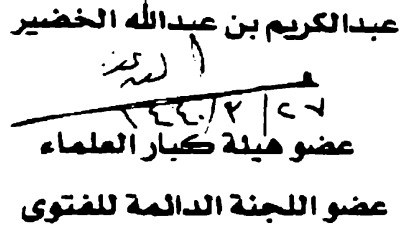 عبدالكريم بن عبدالله الخضير
٢٧/٢/١٤٤٠
عضو هيئة كبار العلماء
عضو اللجنة الدائمة للفتوى